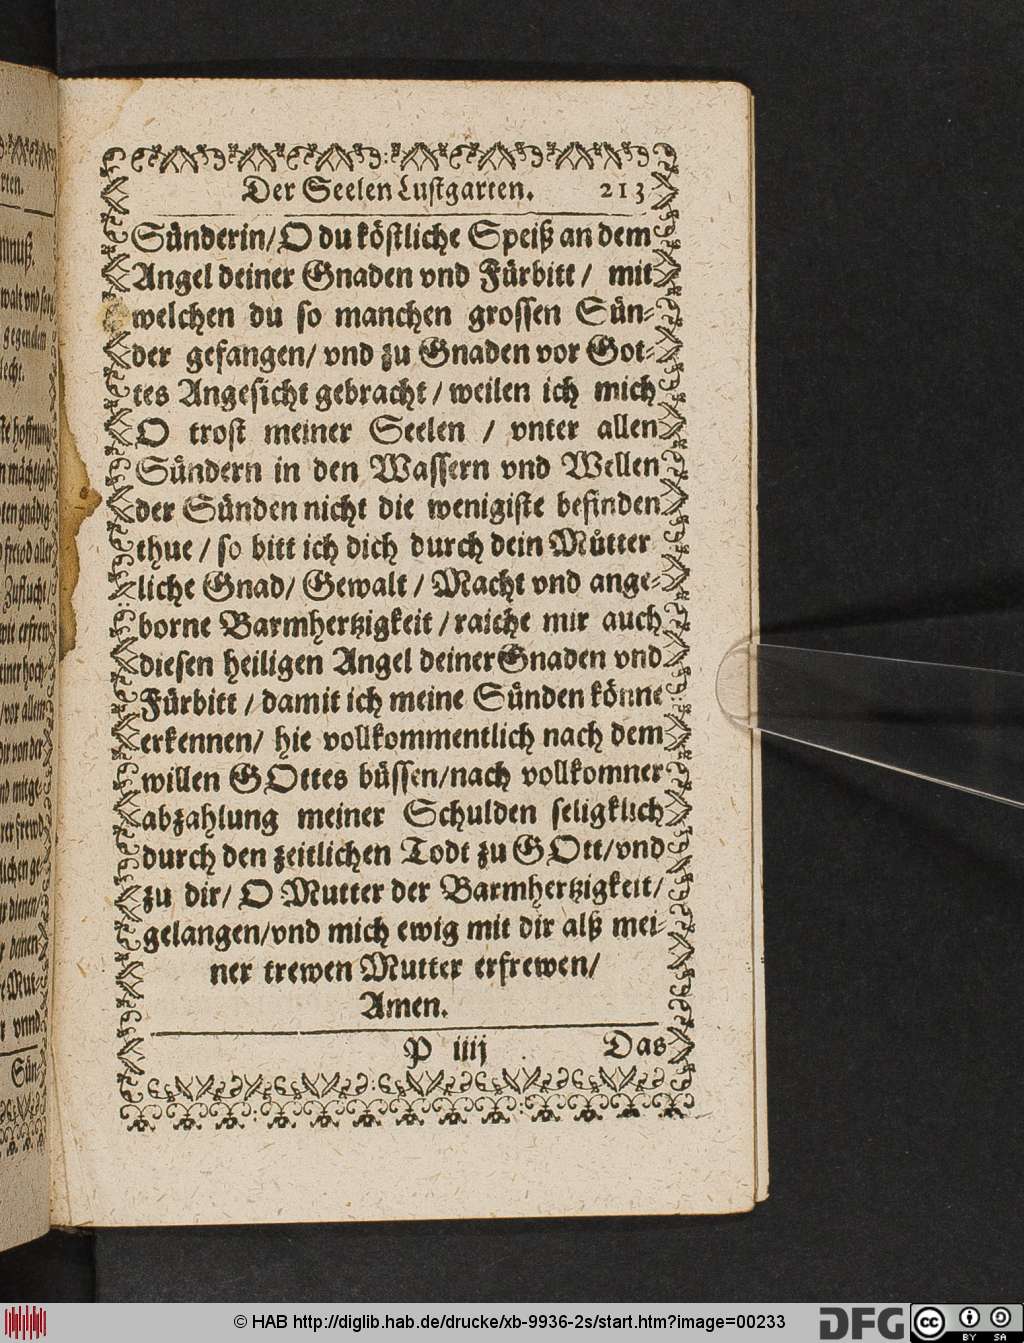 Der Seelen Lustgarten. 213
Sünderin/ O du köstliche Speiß an dem
Angel deiner Gnaden vnd Fürbitt / mit
welchen du so manchen grossen Sün-
der gefangen/ vnd zu Gnaden vor Got-
tes Angesicht gebracht / weilen ich mich
O trost meiner Seelen / vnter allen
Sündern in den Wassern vnd Wellen
der Sünden nicht die wenigiste befinden
thue / so bitt ich dich durch dein Můtter
liche Gnad/ Gewalt / Macht vnd ange-
borne Barmhertzigkeit / raiche mir auch
diesen heiligen Angel deiner Gnaden vnd
Fürbitt / damit ich meine Sünden könne
erkennen/ hie vollkommentlich nach dem
willen GOttes büssen/nach vollkomner
abzahlung meiner Schulden seligklich
durch den zeitlichen Todt zu GOtt/vnd
zu dir/ O Mutter der Barmhertzigkeit/
gelangen/vnd mich ewig mit dir alß mei-
ner trewen Mutter erfrewen/
Amen.
P iiij Das
© HAB http://diglib.hab.de/drucke/xb-9936-2s/start.htm?image=00233
DFG
cc BY SA